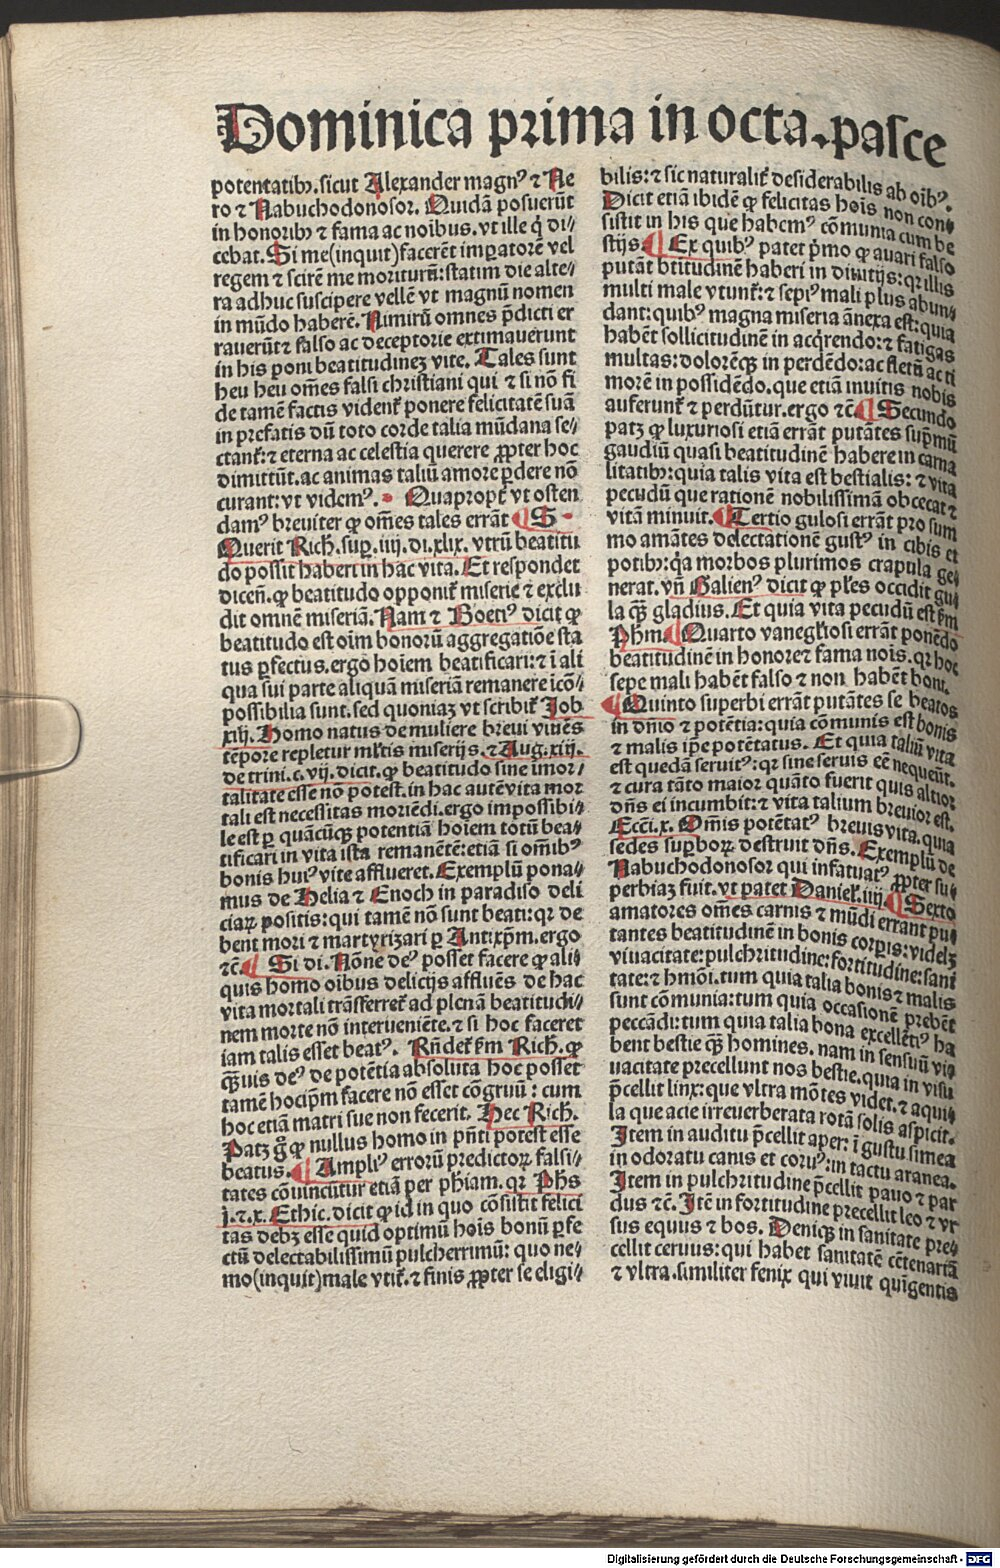 Dominica prima in octa. pasce
potentatibꝫ. sicut Alexander magnꝰ ⁊ Ne
ro ⁊ Nabuchodonosor. Quidā posuerūt
in honoribꝫ ⁊ fama ac noibus. vt ille q̇ di⸗
cebat. Si me (inquit) facerēt imꝑatorē vel
regem ⁊ scirē me moriturū: statim die alte⸗
ra adhuc suscipere vellē vt magnū nomen
in mūdo haberē. Nimirū omnes p̄dicti er
rauerūt ⁊ falso ac deceptorie extimauerunt
in his poni beatitudineꝫ vite. Tales sunt
heu heu om̄es falsi christiani qui ⁊ si nō fi
de tamē factis vident᷑ ponere felicitatē suā
in prefatis dū toto corde talia mūdana se⸗
ctant᷑: ⁊ eterna ac celestia querere ꝓpter hoc
dimittūt. ac animas taliū amore ꝑdere nō
curant: vt videmꝰ. Quapropt̄ vt osten
damꝰ breuiter ꝙ om̄es tales errāt ¶ S
Querit Rich. suꝑ. iiij. di. xlix. vtrū beatitu
do possit haberi in hac vita. Et respondet
dicen̄. ꝙ beatitudo opponit᷑ miserie ⁊ exclu
dit omnē miseriā. Nam ⁊ Boetiꝰ dicit ꝙ
beatitudo est oīm bonorū aggregatiōe sta
tus ꝑfectus. ergo hoīem beatificari: ⁊ ī ali
qua sui parte aliquā miseriā remanere īcō⸗
possibilia sunt. sed quoniaꝫ vt scribit᷑ Job
xiiij. Homo natus de muliere breui viuēs
tēpore repletur ml̄tis miserijs. ⁊ Aug. xiij.
de trini. c. vij. dicit. ꝙ beatitudo sine īmor⸗
talitate esse nō potest. in hac autē vita mor
tali est necessitas moriēdi. ergo impossibi⸗
le est ꝑ quācūqꝫ potentiā hoīem totū bea⸗
tificari in vita ista remanētē: etiā si om̄ibꝰ
bonis huiꝰ vite afflueret. Exemplū pona⸗
mus de Helia ⁊ Enoch in paradiso deli
ciaꝝ positis: qui tamē nō sunt beati: qꝛ de
bent mori ⁊ martyrizari ꝑ Antixp̄m. ergo
⁊c̄. ¶ Si di. Nōne deꝰ posset facere ꝙ ali⸗
quis homo oībus delicijs affluēs de hac
vita mortali trāsferret᷑ ad plenā beatitudi⸗
nem morte nō interueniēte. ⁊ si hoc faceret
iam talis esset beatꝰ. Rn̄det᷑ fm̄ Rich. ꝙ
qꝫuis deꝰ de potētia absoluta hoc posset
tamē hocip̄m facere nō esset cōgruū: cum
hoc etiā matri sue non fecerit. Hec Rich.
Patꝫ gͦ ꝙ nullus homo in pn̄ti potest esse
beatus. ¶ Ampliꝰ errorū predictoꝝ falsi⸗
tates cōuincūtur etiā per ph̄iam. qꝛ Ph̄s
j. ⁊. x. Ethic. dicit ꝙ id in quo cōsistit felici
tas debꝫ esse quid optimū hoīs bonū ꝑfe
ctū delectabilissimū pulcherrimū: quo ne⸗
mo (inquit) male vtit᷑. ⁊ finis ꝓpter se eligi⸗
bilis: ⁊ sic naturalit᷑ desiderabilis ab oībꝰ.
Dicit etiā ibidē ꝙ felicitas hoīs non con⸗
sistit in his que habemꝰ cōmunia cum be
stijs. ¶ Ex quibꝰ patet p̄mo ꝙ auari falso
putāt btītudinē haberi in diuitijs: qꝛ illis
multi male vtunt᷑: ⁊ sepiꝰ mali plus abun⸗
dant: quibꝰ magna miseria ānexa est: quia
habēt sollicitudinē in acq̇rendo: ⁊ fatigas
multas: dolorēqꝫ in perdēdo: ac fletū ac ti
morē in possidēdo. que etiā inuitis nobis
auferunt᷑ ⁊ perdūtur. ergo ⁊c̄. ¶ Secundo
patꝫ ꝙ luxuriosi etiā errāt putātes sup̄mū
gaudiū quasi beatitudinē habere in carna
litatibꝫ: quia talis vita est bestialis: ⁊ vita
pecudū que rationē nobilissimā obcecat ⁊
vitā minuit. ¶ Tertio gulosi errāt pro sum
mo amātes delectationē gustꝰ in cibis et
potibꝫ: q̇a morbos plurimos crapula ge⸗
nerat. vn̄ Galienꝰ dicit ꝙ pl̄es occidit gu⸗
la qꝫ gladius. Et quia vita pecudū est fm̄
Ph̄m. ¶ Quarto vanegl̄iosi errāt ponēdo
beatitudinē in honore ⁊ fama noīs. qꝛ hoc
sepe mali habēt falso ⁊ non habēt boni.
¶ Quinto superbi errāt putātes se beatos
in dn̄io ⁊ potētia: quia cōmunis est bonis
⁊ malis ip̄e potētatus. Et quia taliū vita
est quedā seruitꝰ: qꝛ sine seruis eē nequeūt.
⁊ cura tāto maior quāto fuerit quis altior
dn̄s ei incumbit: ⁊ vita talium breuior est.
Ecci. x. Om̄is potētatꝰ breuis vita. quia
sedes suꝑboꝝ destruit dn̄s. Exemplū de
Nabuchodonosor qui infatuatꝰ ꝓpter su⸗
perbiaꝫ fuit. vt patet Daniel. iiij. ¶ Sexto
amatores om̄es carnis ⁊ mūdi errant pu⸗
tantes beatitudinē in bonis corꝑis: videlꝫ
viuacitate: pulchritudine: fortitudine: sani
tate: ⁊ hm̄oi. tum quia talia bonis ⁊ malis
sunt cōmunia: tum quia occasionē prebēt
peccādi: tum quia talia bona excellētiꝰ ha
bent bestie qꝫ homines. nam in sensuū vi⸗
uacitate precellunt nos bestie. quia in visu
p̄cellit linx: que vltra mōtes videt. ⁊ aqui⸗
la que acie irreuerberata rotā solis aspicit.
Item in auditu p̄cellit aper: ī gustu simea
in odoratu canis et coruꝰ: in tactu aranea.
Item in pulchritudine p̄cellit pauo ⁊ par
dus ⁊c̄. Itē in fortitudine precellit leo ⁊ vr
sus equus ⁊ bos. Deniqꝫ in sanitate pre⸗
cellit ceruus: qui habet sanitatē cētenariā
⁊ vltra. similiter fenix qui viuit quīgentis
Digitalisierung gefördert durch die Deutsche Forschungsgemeinschaft - DFG